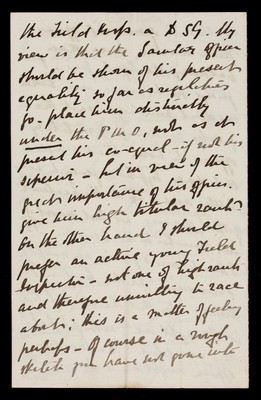 the Field Insp. as a DSG. My
view is that the Sanitary officer
should be shorn of his present
equality so far as regulations
go - place him distinctly
under the P M O, not as at
present his co-equal - if not his
superior - but in view of the
great importance of his office.
give him high titular rank.
On the other hand I should
prefer an active young Field
Inspector - not one of high rank
and therefore unwilling to race
about; this is a matter of feeling
perhaps - Of course in a rough
sketch you have not gone into